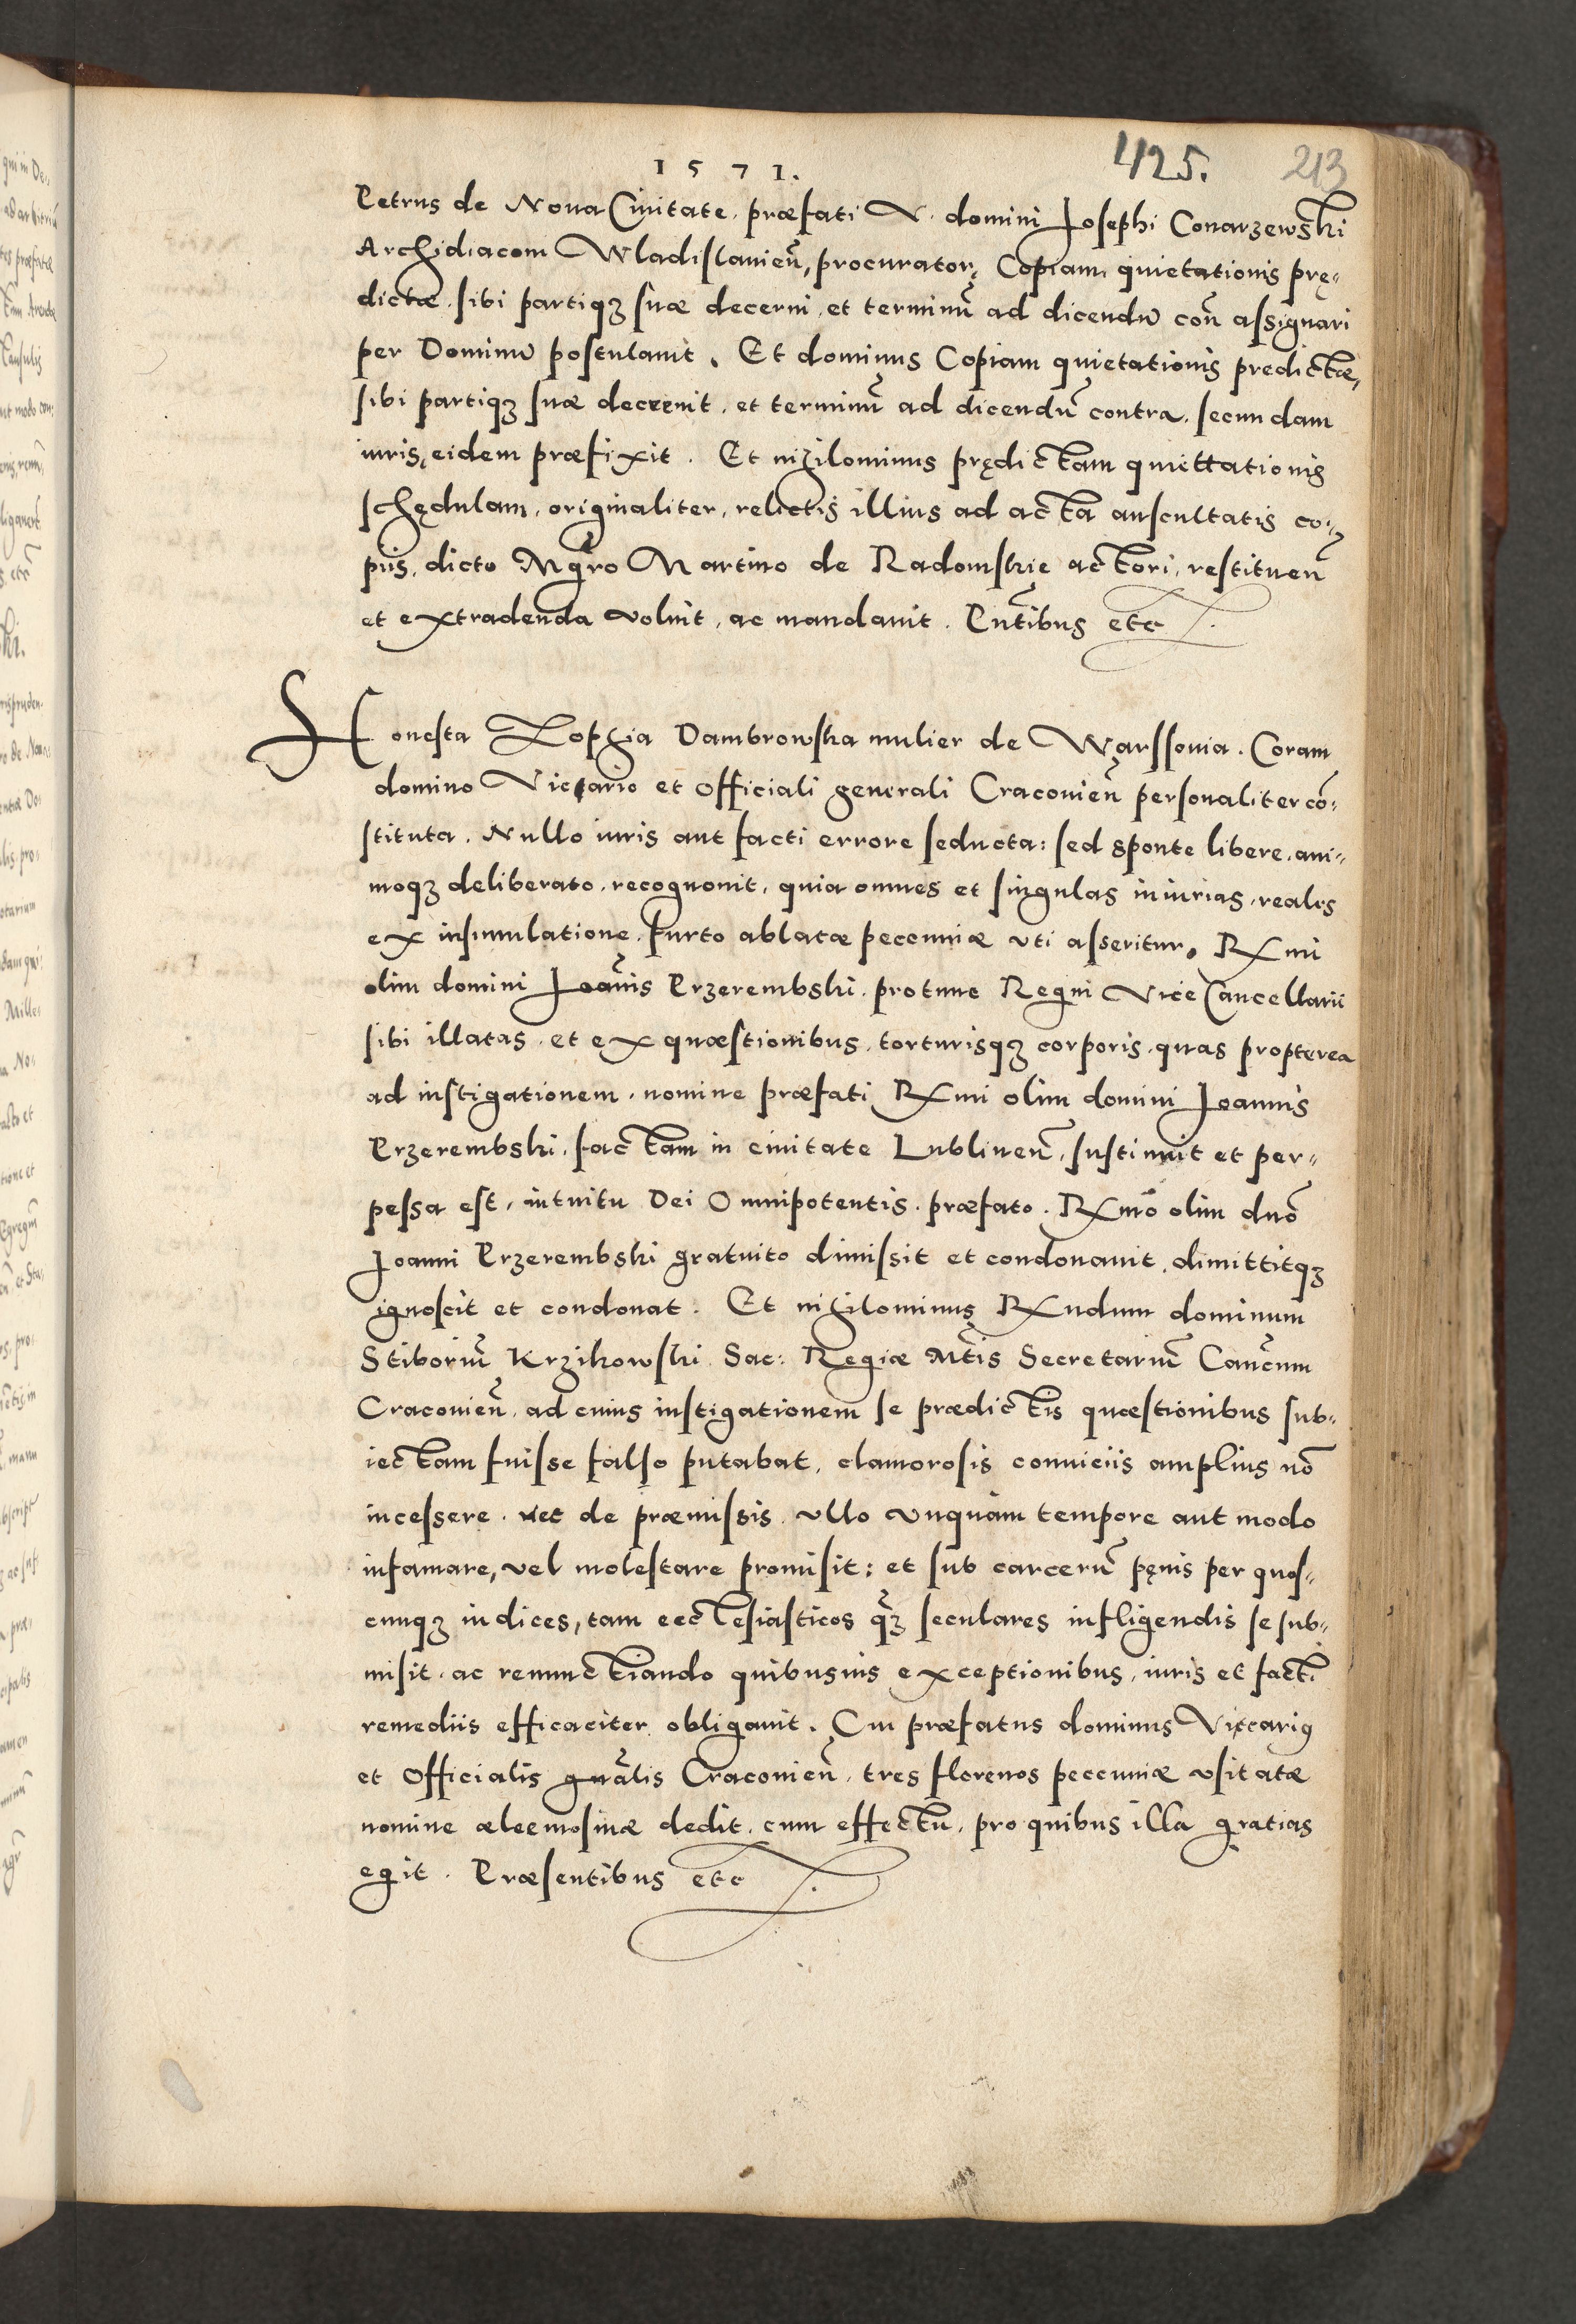 1571.
425.
213
Petrus de Noua Ciuitate, præfati V. domini Josephi Conarzewski
Archidiaconi Wladislauien̄, procurator, Copiam quietationis prę-
dictæ sibi partiqȝ suæ decerni, et terminū ad dicendū con̄ assignari
per Dominū postulauit. Et dominus Copiam quietationis predictæ,
sibi partiqȝ suæ decreuit, et terminū ad dicendū contra, secundam
iuris, eidem præfixit. Et nihilominus prędictam quiettationis
schędulam, originaliter, relictis illius ad acta auscultatis co-
piis, dicto Mgro Martino de Radomskie actori, restituen̄
et extradenda voluit, ac mandauit. Pn̄tibus etc
Honesta Zophia Dambrowska mulier de Warssouia. Coram
domino Vicario et Officiali generali Craconien̄ personaliter cō-
stituta. Nullo iuris aut facti errore seducta: sed sponte libere, ani-
moqȝ deliberato, recognouit, quia omnes et singulas iniurias, reales
ex insimulatione, furto ablatæ pecuniæ vti asseritur, Rxmi
olim domini Joān̄is Przerembski, protunc Regni Vice Cancellarii
sibi illatas, et ex quæstionibus, torturisqȝ corporis, quas propterea
ad instigationem, nomine præfati Rxmi olim domini Joannis
Przerembski, factam in ciuitate Lublinen̄, sustinuit et per-
pessa est, intuitu Dei Omnipotentis, præfato, Rxmō olim dnō
Joanni Przerembski gratuito dimissit et condonauit, dimittitqȝ
ignoscit et condonat. Et nihilominus Rxndum dominum
Stiboriū Krzikowski Sac: Regiæ Mt̄is Secretariū Can̄cum
Craconien̄, ad cuius instigationem se prædictis quæstionibus sub-
iectam fuisse falso putabat, clamorosis conuiciis amplius nō
incessere, nec de præmissis, vllo vnquam tempore aut modo
infamare, vel molestare promisit: et sub carcerū pęnis per quos-
cunqȝ iudices, tam ecclesiasticos q̄ȝ seculares infligendis se sub-
misit, ac renunctiando quibusuis exceptionibus, iuris et facti
remediis efficaciter obligauit. Cui præfatus dominus Viccarig
et Officialis gnālis Craconien̄, tres florenos peccuniæ vsitatæ
nomine æleemosinæ dedit, cum effectu, pro quibus illa gratias
egit. Præsentibus etc